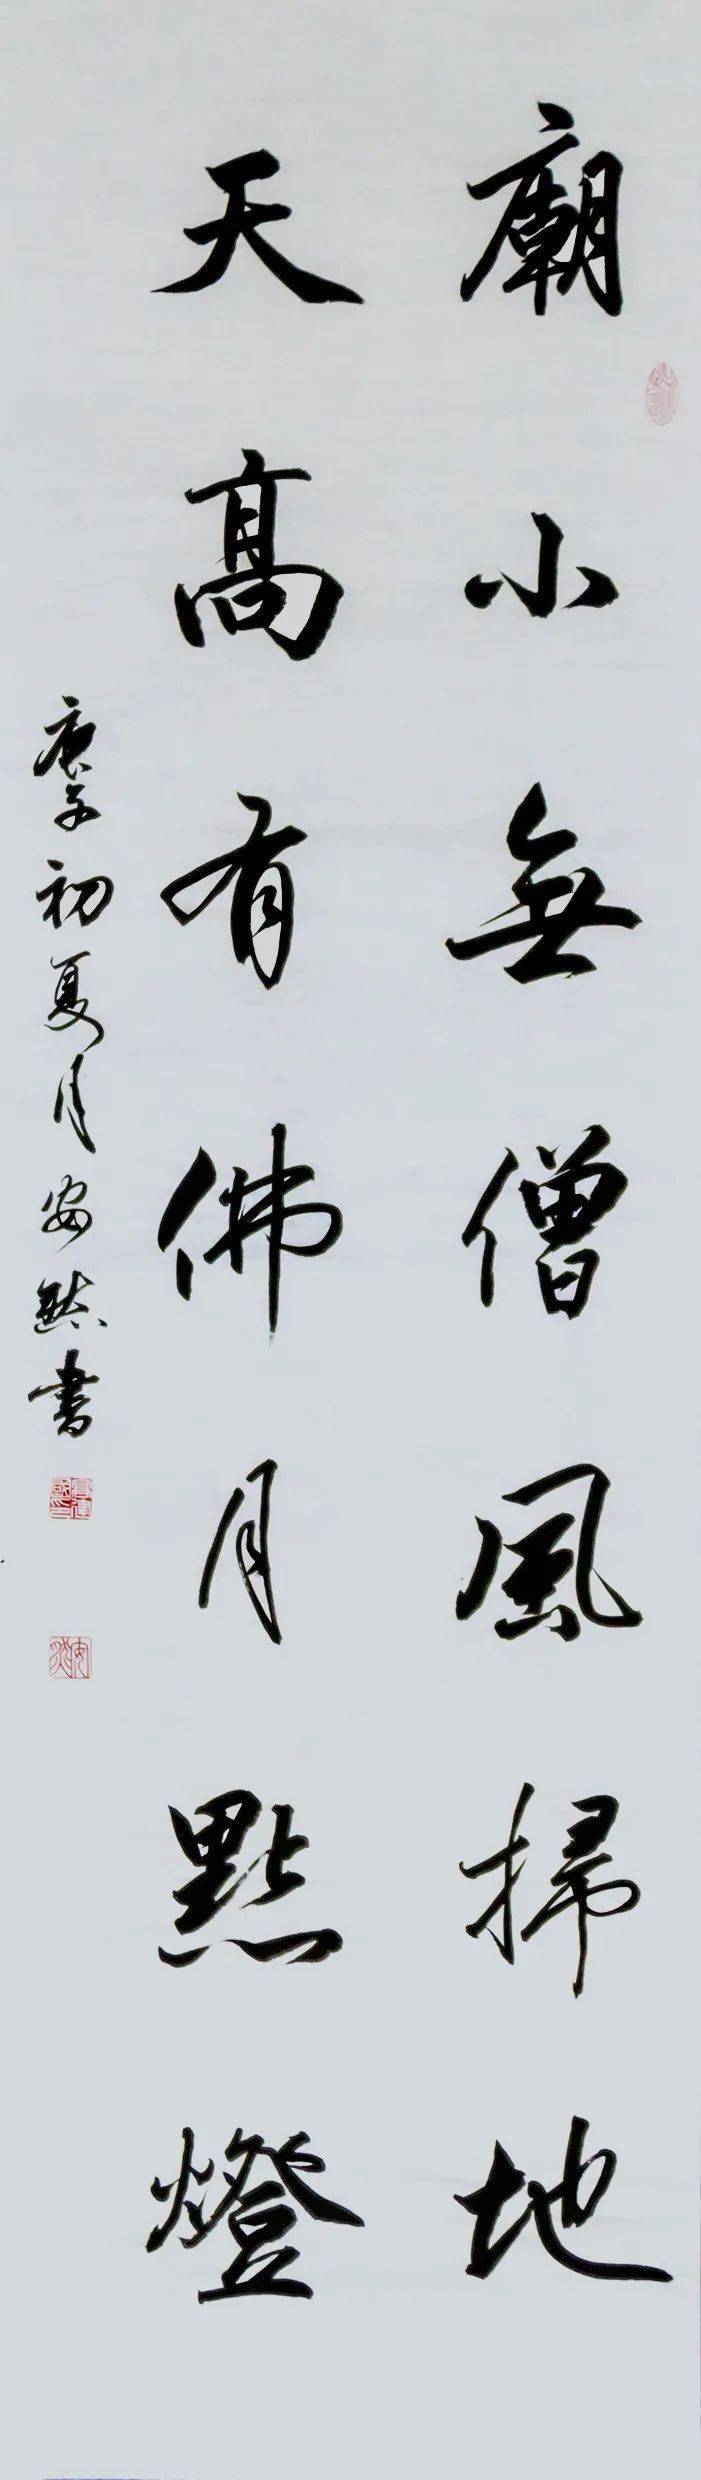 廟小無僧風掃地
天高有佛月點燈
庚子初夏月安然書